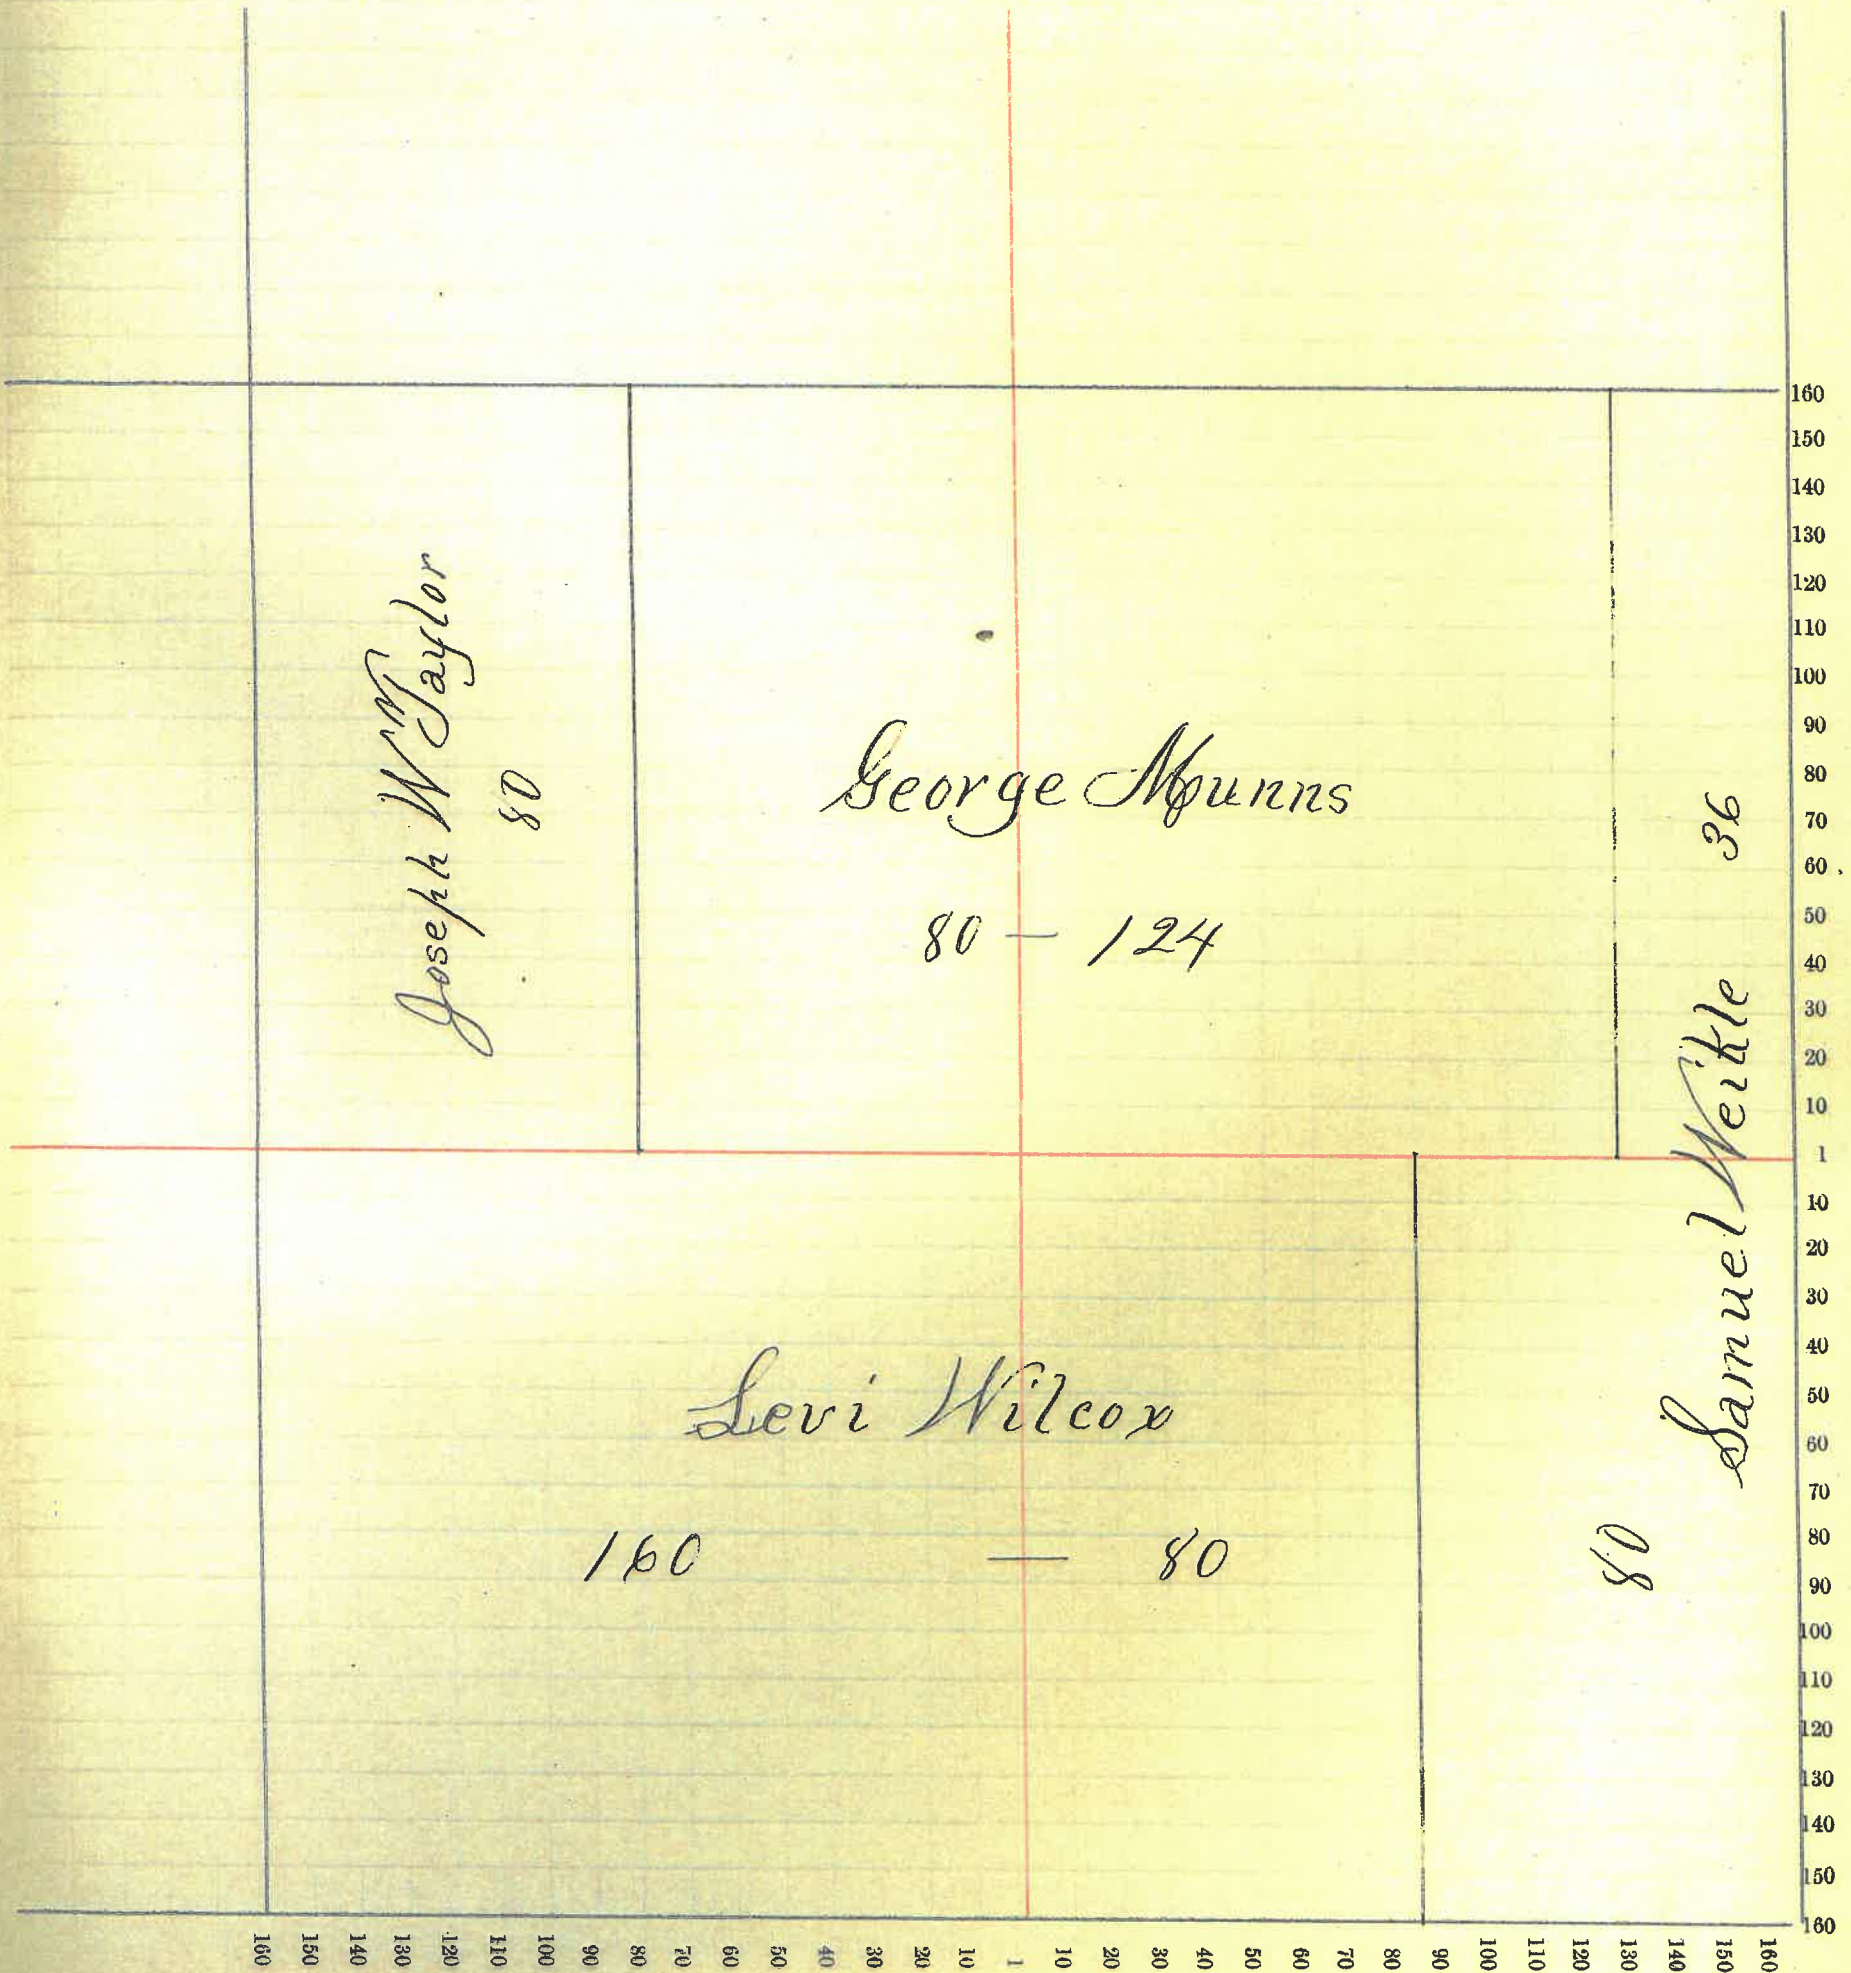 Joseph Wm Taylor
80
George Munns
80 — 124
Samuel Weikle 36
80
Levi Wilcox
160 — 80
160
150
140
130
120
110
100
90
80
70
60
50
40
30
20
10
1
10
20
30
40
50
60
70
80
90
100
110
120
130
140
150
160
160 150 140 130 120 110 100 90 80 70 60 50 40 30 20 10 1 10 20 30 40 50 60 70 80 90 100 110 120 130 140 150 160